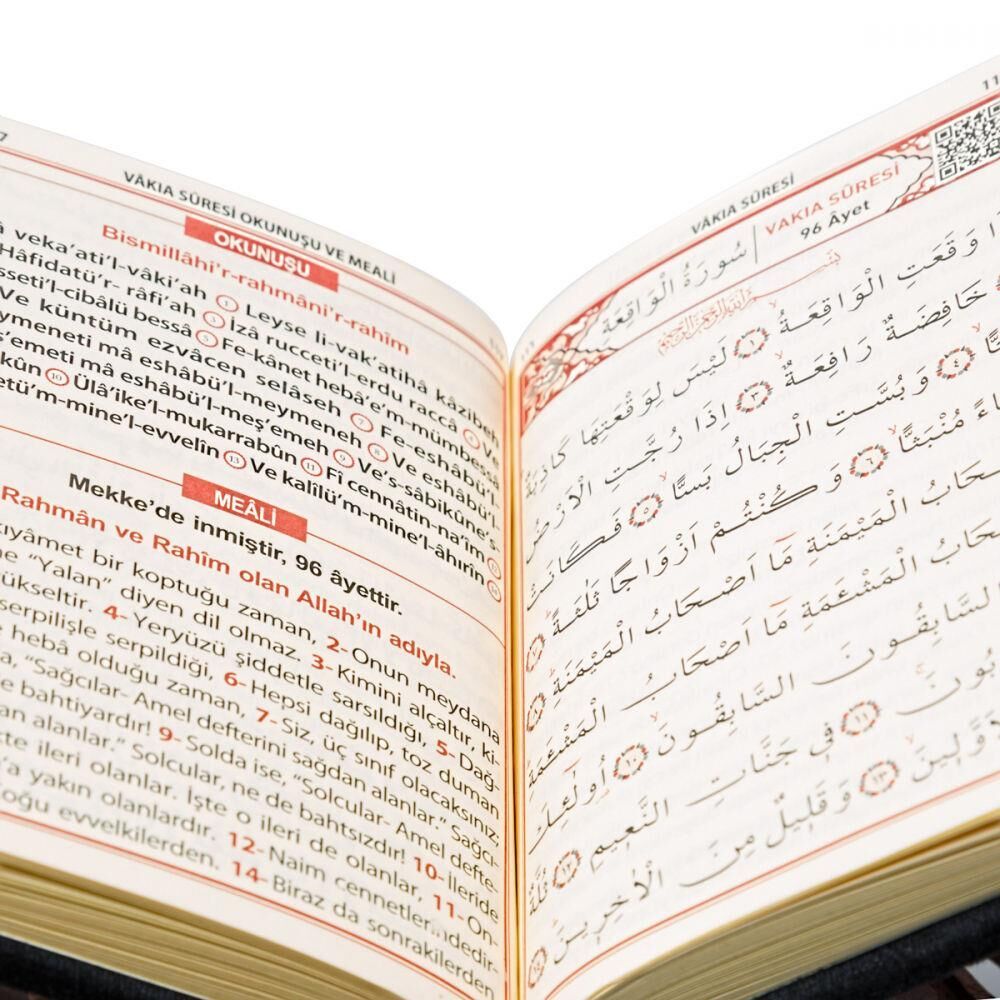 VÂKIA SÛRESİ OKUNUŞU VE MEALİ
OKUNUŞU
Bismillâhi'r-rahmâni'r-rahîm
veka'ati'l-vâki'ah ① Leyse li-vak'atihâ kâzibeh
Hâfidatü'r- râfi'ah ③ İzâ rucceti'l-erdu raccâ ④ Ve
sseti'l-cibâlü bessâ ⑤ Fe-kânet hebâ'e'm-mümbessâ
Ve küntüm ezvâcen selâseh ⑦ Fe-eshâbü'l-
ymeneti mâ eshâbü'l-meymeneh ⑧ Ve eshâbü'l-
ş'emeti mâ eshâbü'l-meş'emeh ⑨ Ve's-sâbikûne's-
kûn ⑩ Ülâ'ike'l-mukarrabûn ⑪ Fî cennâtin-na'îm ⑫
etü'm-mine'l-evvelîn ⑬ Ve kalîlü'm-mine'l-âhırîn ⑭
MEÂLİ
Mekke'de inmiştir, 96 âyettir.
Rahmân ve Rahîm olan Allah'ın adıyla.
kıyâmet bir koptuğu zaman, 2- Onun meydana
ne "Yalan" diyen dil olmaz. 3- Kimini alçaltır, ki-
yükseltir. 4- Yeryüzü şiddetle sarsıldığı, 5- Dağ-
serpilişle serpildiği, 6- Hepsi dağılıp, toz duman
heba olduğu zaman, 7- Siz, üç sınıf olacaksınız;
a, "Sağcılar- Amel defterini sağdan alanlar." Sağcı-
e bahtiyardır! 9- Solda ise, "Solcular- Amel defte-
an alanlar." Solcular, ne de bahtsızdır! 10- İleride
te ileri olanlar. İşte o ileri de olanlar, 11- On-
'a yakın olanlardır. 12- Naim cennetlerindedir-
oğu evvelkilerden. 14- Biraz da sonrakilerden
11
VÂKIA SÛRESİ
VAKIA SÛRESİ
96 Âyet
سُورَةُ الْوَاقِعَةِ
بِسْمِ اللّٰهِ الرَّحْمٰنِ الرَّحِيمِ
ا وَقَعَتِ الْوَاقِعَةُ ﴿١﴾ لَيْسَ لِوَقْعَتِهَا كَاذِبَةٌ
خَافِضَةٌ رَافِعَةٌ ﴿٣﴾ اِذَا رُجَّتِ الْاَرْضُ
﴿٤﴾ وَبُسَّتِ الْجِبَالُ بَسًّا ﴿٥﴾ فَكَانَتْ
اءً مُنْبَثًّا ﴿٦﴾ وَكُنْتُمْ اَزْوَاجًا ثَلٰثَةً ﴿٧﴾
حَابُ الْمَيْمَنَةِ مَٓا اَصْحَابُ الْمَيْمَنَةِ ﴿٨﴾
حَابُ الْمَشْـَٔمَةِ مَٓا اَصْحَابُ الْمَشْـَٔمَةِ
السَّابِقُونَ السَّابِقُونَ ﴿١٠﴾ اُولٰٓئِكَ
بُونَ ﴿١١﴾ فِي جَنَّاتِ النَّعِيمِ ﴿١٢﴾ ثُلَّةٌ
وَّلِينَ ﴿١٣﴾ وَقَلِيلٌ مِنَ الْاٰخِرِينَ ﴿١٤﴾